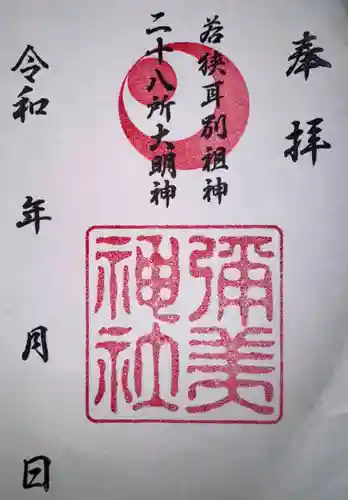 奉拝
若狭耳別祖神
二十八所大明神
彌美
神社
令和 年 月 日